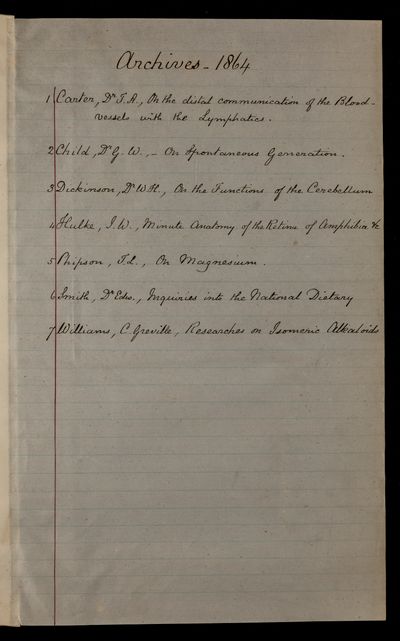 Archives - 1864
1 Carter, Dr T. A., On the distal communication of the Blood-
vessels with the Lymphatics.
2 Child, Dr G. W., - On Spontaneous Generation.
3 Dickinson, Dr W H., On the Functions of the Cerebellum
4 Hulke, J. W., Minute anatomy of the Retina of Amphibia &c
5 Phipson, T. L., On Magnesium.
6 Smith, Dr Edw., Inquiries into the National Dietary
7 Williams, C. Greville, Researches on Isomeric Alkaloids